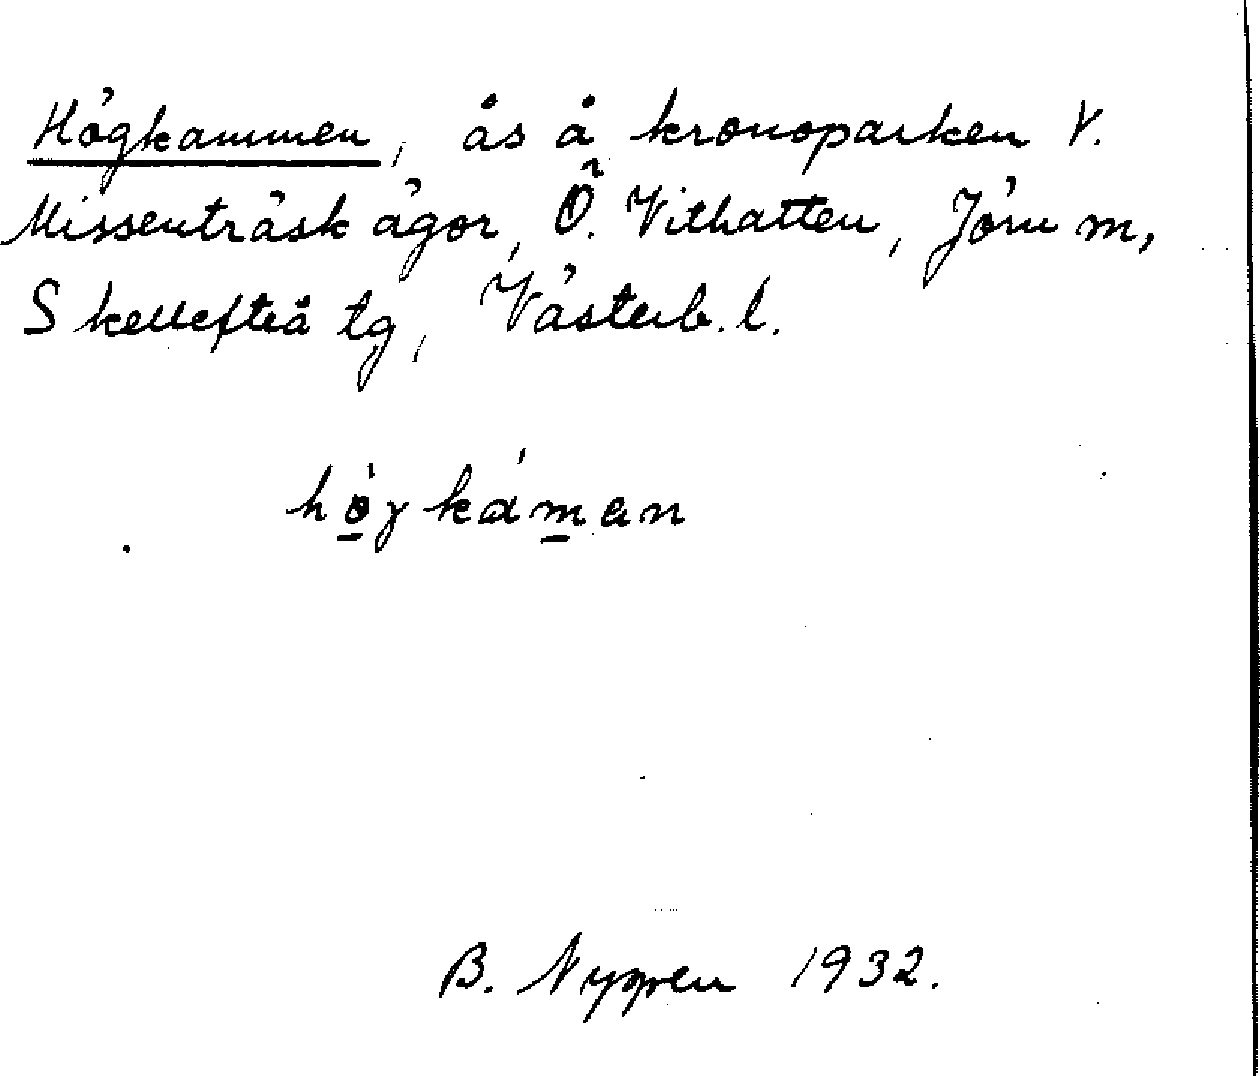 Högkammen, ås å kronoparken V.
Missenträsk ägor, Ö. Vithatten, Jörn m,
Skellefteå tg, Västerb. l.
högkáman
B. Nygren 1932.